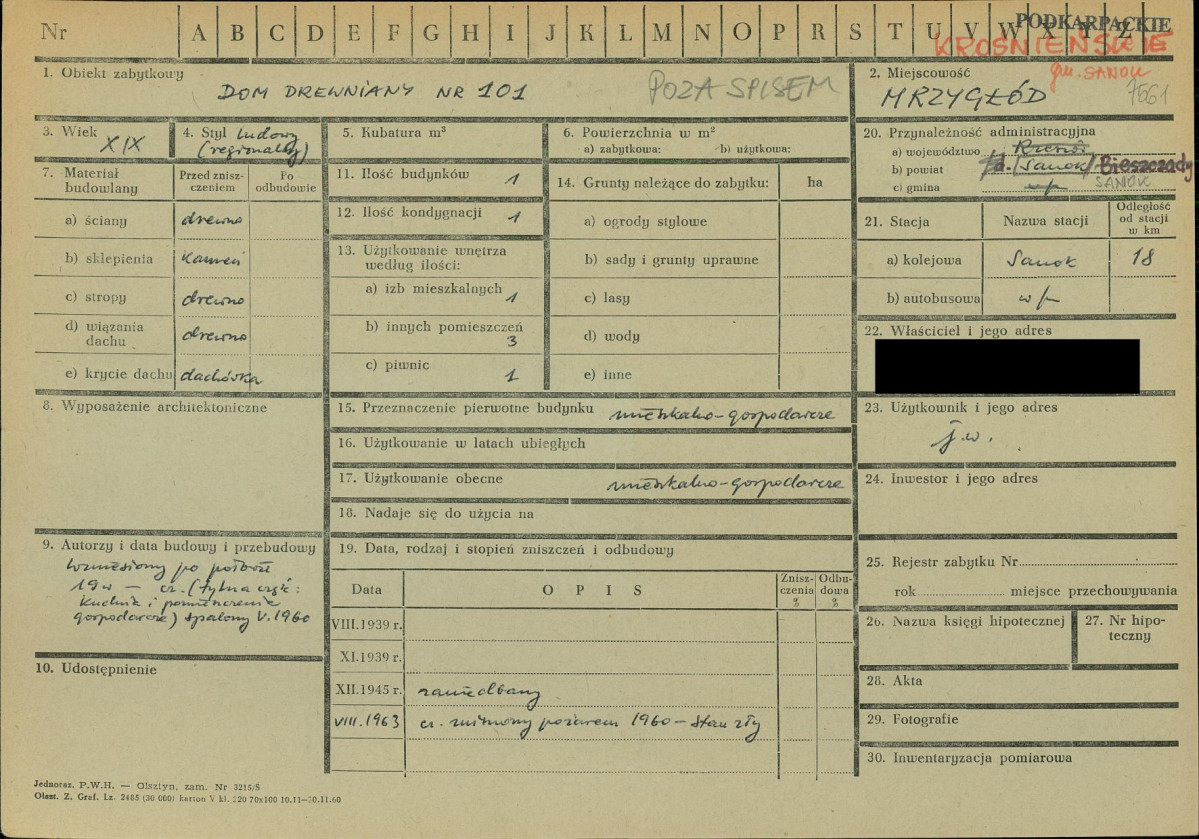 Nr A B C D E F G H I J K L M N O P R S T U V W X Y Z
PODKARPACKIE
KROŚNIEŃSKIE
gm. SANOK
1. Obiekt zabytkowy
DOM DREWNIANY NR 101
POZA SPISEM
2. Miejscowość
MRZYGŁÓD
7661
3. Wiek
XIX
4. Styl ludowy
(regionalny)
5. Kubatura m³
6. Powierzchnia w m²
a) zabytkowa: b) użytkowa:
7. Materiał budowlany
Przed zniszczeniem
Po odbudowie
a) ściany drewno
b) sklepienia kamień
c) stropy drewno
d) wiązania dachu drewno
e) krycie dachu dachówka
11. Ilość budynków 1
12. Ilość kondygnacji 1
13. Użytkowanie wnętrza
według ilości:
a) izb mieszkalnych 1
b) innych pomieszczeń 3
c) piwnic 1
14. Grunty należące do zabytku: ha
a) ogrody stylowe
b) sady i grunty uprawne
c) lasy
d) wody
e) inne
20. Przynależność administracyjna
a) województwo Rzeszów
b) powiat (Sanok) Bieszczady
c) gmina w/m SANOK
21. Stacja Nazwa stacji Odległość od stacji w km
a) kolejowa Sanok 18
b) autobusowa w/m
22. Właściciel i jego adres
8. Wyposażenie architektoniczne
15. Przeznaczenie pierwotne budynku mieszkalno-gospodarcze
16. Użytkowanie w latach ubiegłych
17. Użytkowanie obecne mieszkalno-gospodarcze
18. Nadaje się do użycia na
23. Użytkownik i jego adres
j.w.
24. Inwestor i jego adres
9. Autorzy i data budowy i przebudowy
Wzniesiony po połowie
19 w – cz. (tylna część:
kuchnia i pomieszczenia
gospodarcze) spalony V. 1960
10. Udostępnienie
19. Data, rodzaj i stopień zniszczeń i odbudowy
Data OPIS Zniszczenia % Odbudowa %
VIII.1939 r.
XI.1939 r.
XII.1945 r. zaniedbany
VIII.1963 cz. zniszczony pożarem 1960 – stan zły
25. Rejestr zabytku Nr
rok miejsce przechowywania
26. Nazwa księgi hipotecznej
27. Nr hipoteczny
28. Akta
29. Fotografie
30. Inwentaryzacja pomiarowa
Jednoraz. P.W.H. — Olsztyn, zam. Nr 3215/S
Olszt. Z. Graf. Lz. 2485 (30 000) karton V kl. 220 70x100 10.11–30.11.60